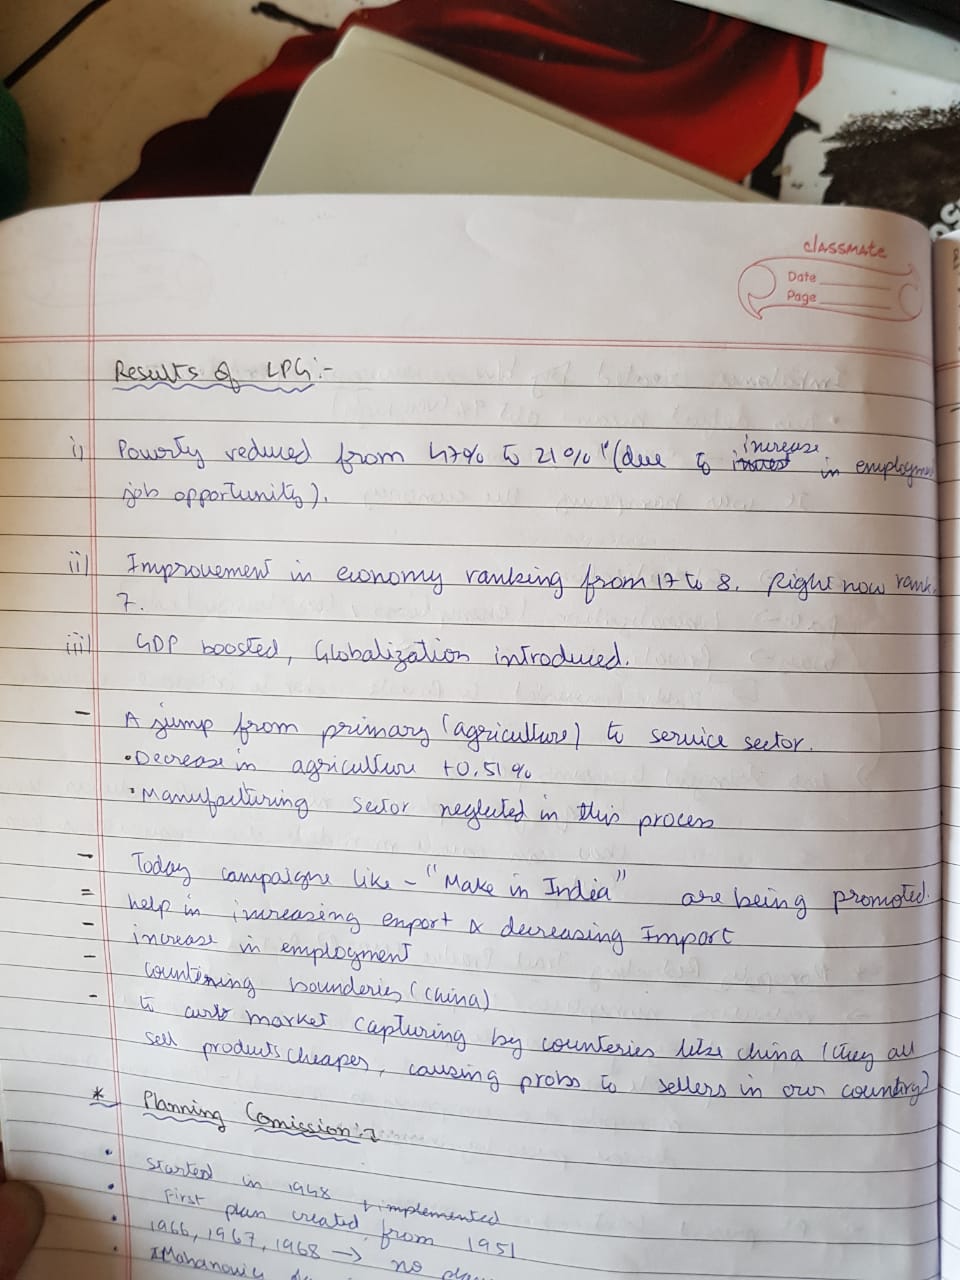 classmate
Date
Page
Results of LPG:-
i) Poverty reduced from 47% to 21% "(due to increase in employment
job opportunity).
ii) Improvement in economy ranking from 17 to 8. Right now rank
7.
iii) GDP boosted, Globalization introduced.
- A jump from primary (agriculture) to service sector.
• Decrease in agriculture to 0.51%
• Manufacturing sector neglected in this process
- Today campaigns like - "Make in India" are being promoted.
= help in increasing export & decreasing Import
- increase in employment
- countering bounderies (China)
- to curb market capturing by counteries like china (they all
sell products cheaper, causing probs to sellers in our country)
* Planning Comission:-
• Started in 1948
• First plan created, + implemented from 1951
• 1966, 1967, 1968 → no
•